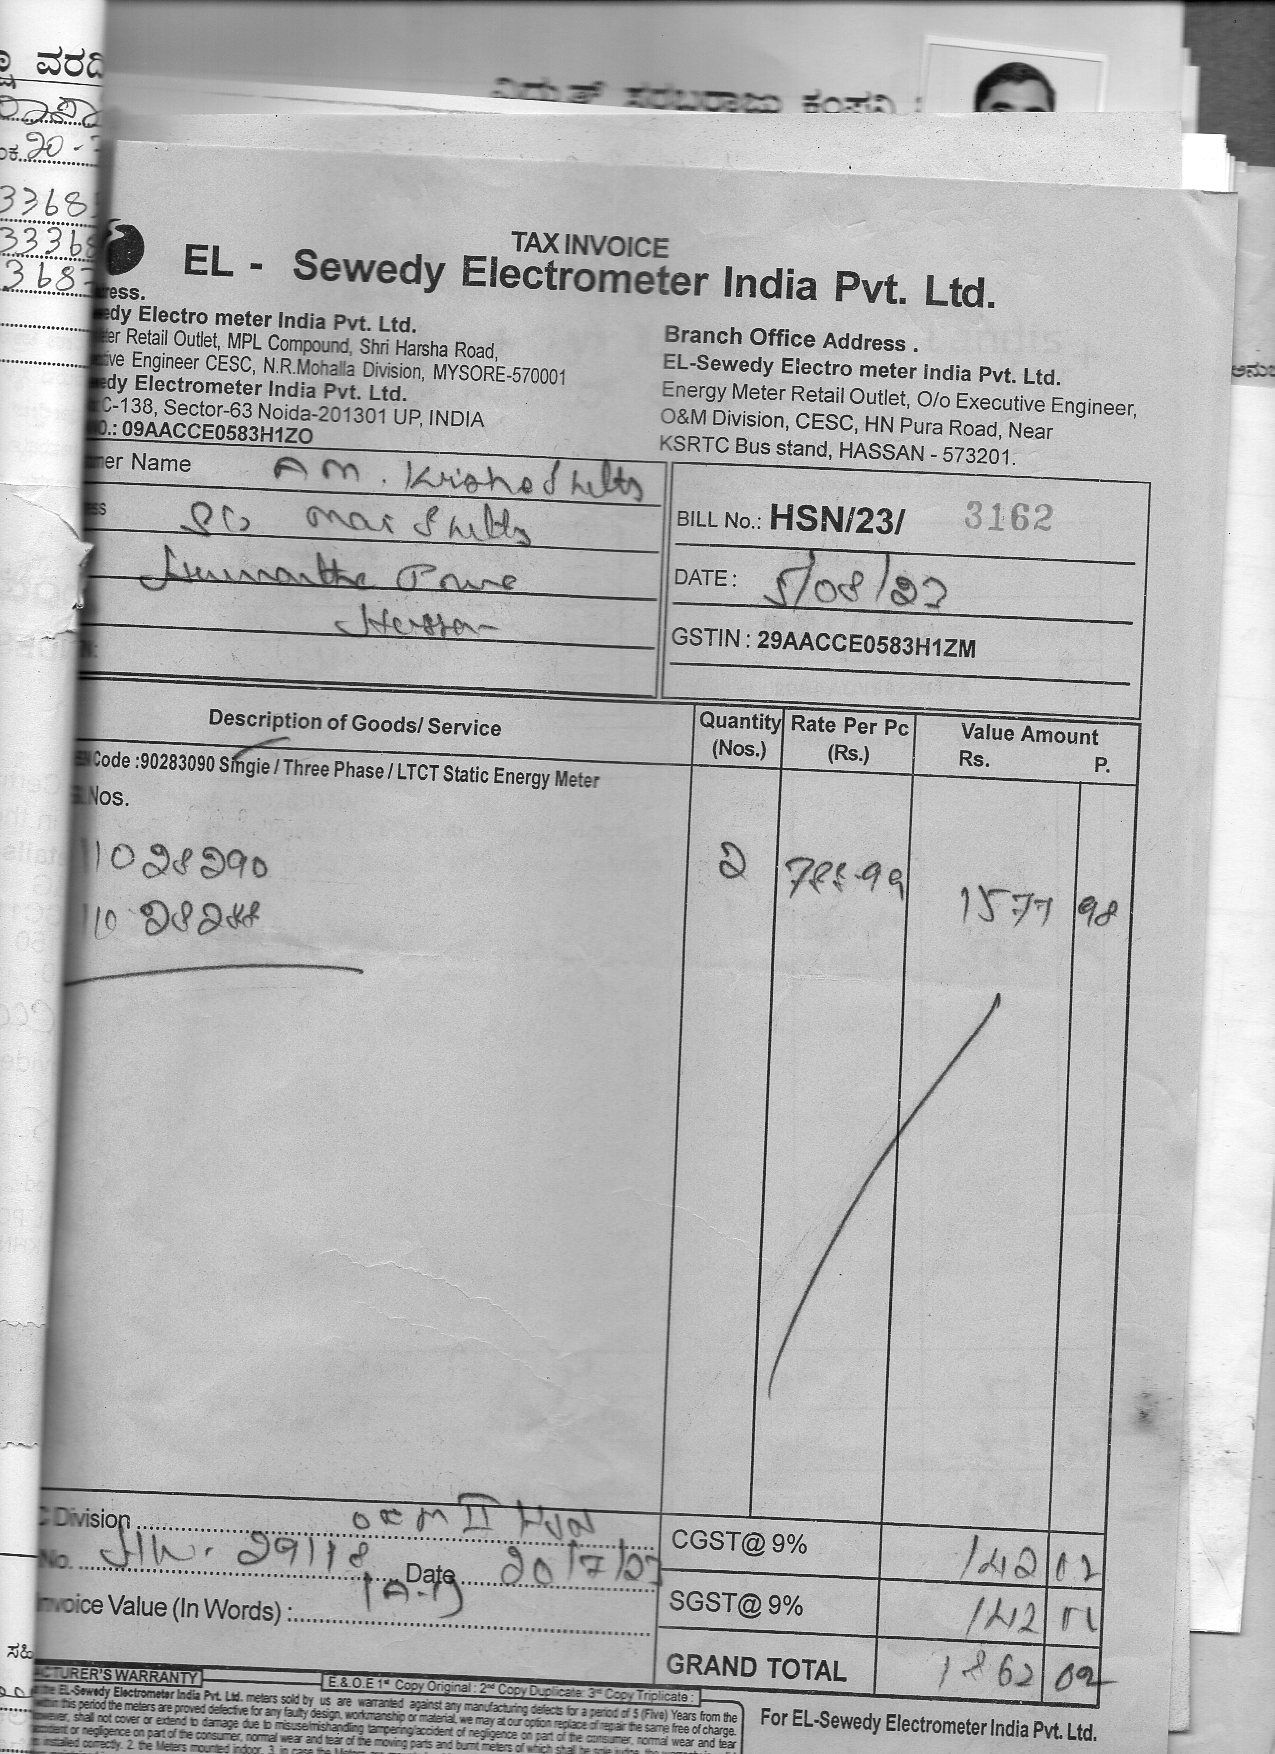 ವರದಿ
ವಿದ್ಯುತ್ ಸರಬರಾಜು ಕಂಪನಿ
20-
3368
33368
3683
TAX INVOICE
EL - Sewedy Electrometer India Pvt. Ltd.
ress.
edy Electro meter India Pvt. Ltd.
er Retail Outlet, MPL Compound, Shri Harsha Road,
tive Engineer CESC, N.R.Mohalla Division, MYSORE-570001
edy Electrometer India Pvt. Ltd.
C-138, Sector-63 Noida-201301 UP, INDIA
O.: 09AACCE0583H1ZO
Branch Office Address .
EL-Sewedy Electro meter India Pvt. Ltd.
Energy Meter Retail Outlet, O/o Executive Engineer,
O&M Division, CESC, HN Pura Road, Near
KSRTC Bus stand, HASSAN - 573201.
mer Name A M . Krishna Shetty
ess S/o Shetty
Hassan
N:
BILL No.: HSN/23/ 3162
DATE : 5/08/23
GSTIN : 29AACCE0583H1ZM
Description of Goods/ Service
Quantity (Nos.)
Rate Per Pc (Rs.)
Value Amount
Rs. P.
Code :90283090 Single / Three Phase / LTCT Static Energy Meter
Nos.
11028290 2 788.99 1577 98
11028288
C Division O & M II HSN
No. 29118 Date 20/7/23
nvoice Value (In Words) :
CGST@ 9% 142 02
SGST@ 9% 142 02
GRAND TOTAL 1862 02
CTURER'S WARRANTY
E.& O.E 1st Copy Original : 2nd Copy Duplicate: 3rd Copy Triplicate :
the EL-Sewedy Electrometer India Pvt. Ltd. meters sold by us are warranted against any manufacturing defects for a period of 5 (Five) Years from the
within this period the meters are proved defective for any faulty design, workmanship or material, we may at our option replace of repair the same free of charge.
however, shall not cover or extend to damage due to misuse/mishandling tampering/accident of negligence on part of the consumer, normal wear and tear
accident or negligence on part of the consumer, normal wear and tear of the moving parts and burnt meters of which shall be
installed correctly. 2. the Meters mounted indoor. 3. in case the Meters
For EL-Sewedy Electrometer India Pvt. Ltd.
ಸಹಿ